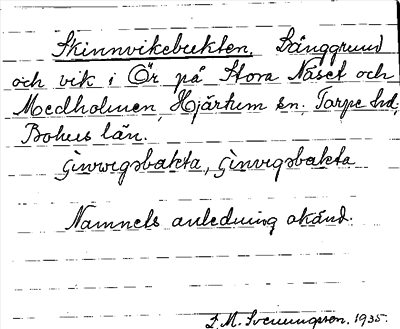 Skinnvikebukten. Långgrund
och vik i Ör på Stora Näset och
Medholmen, Hjärtum sn, Torpe hd,
Bohus län.
Namnets anledning okänd.
F. M. Svenungsson. 1935.